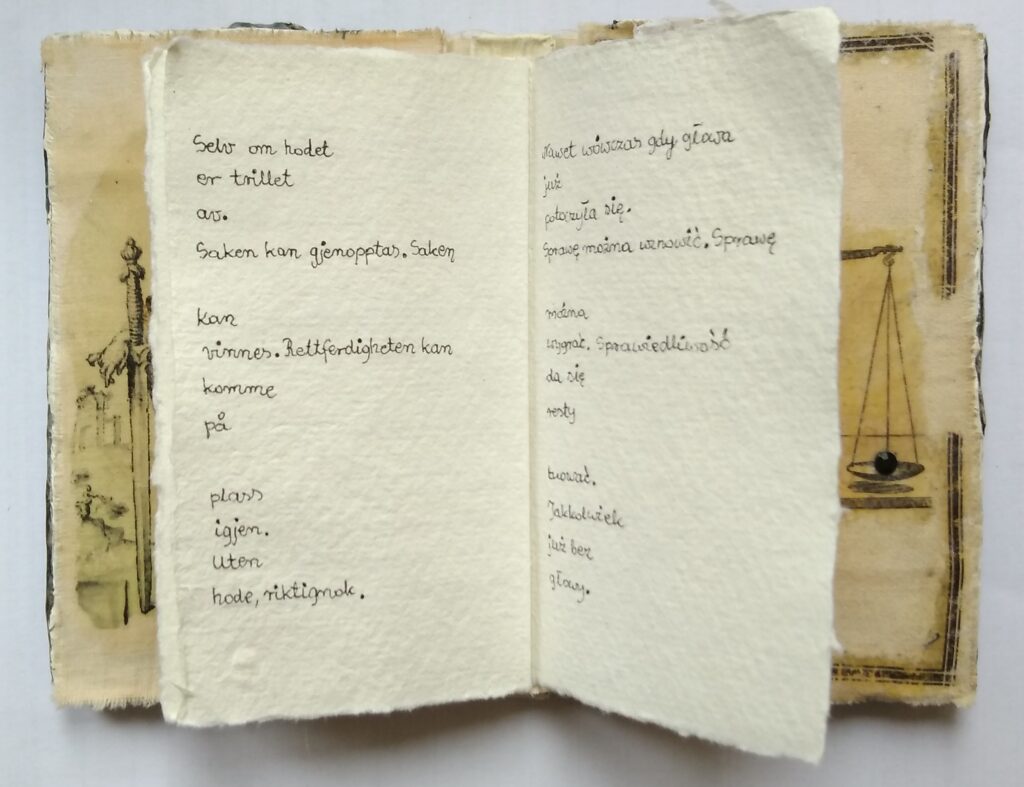 Selv om hodet
er trillet
av.
Saken kan gjenopptas. Saken
kan
vinnes. Rettferdigheten kan
komme
på
plass
igjen.
Uten
hode, riktignok.
Nawet wówczas gdy głowa
już
potoczyła się.
Sprawę można wznowić. Sprawę
można
wygrać. Sprawiedliwość
da się
resty
tuować.
Jakkolwiek
już bez
głowy.